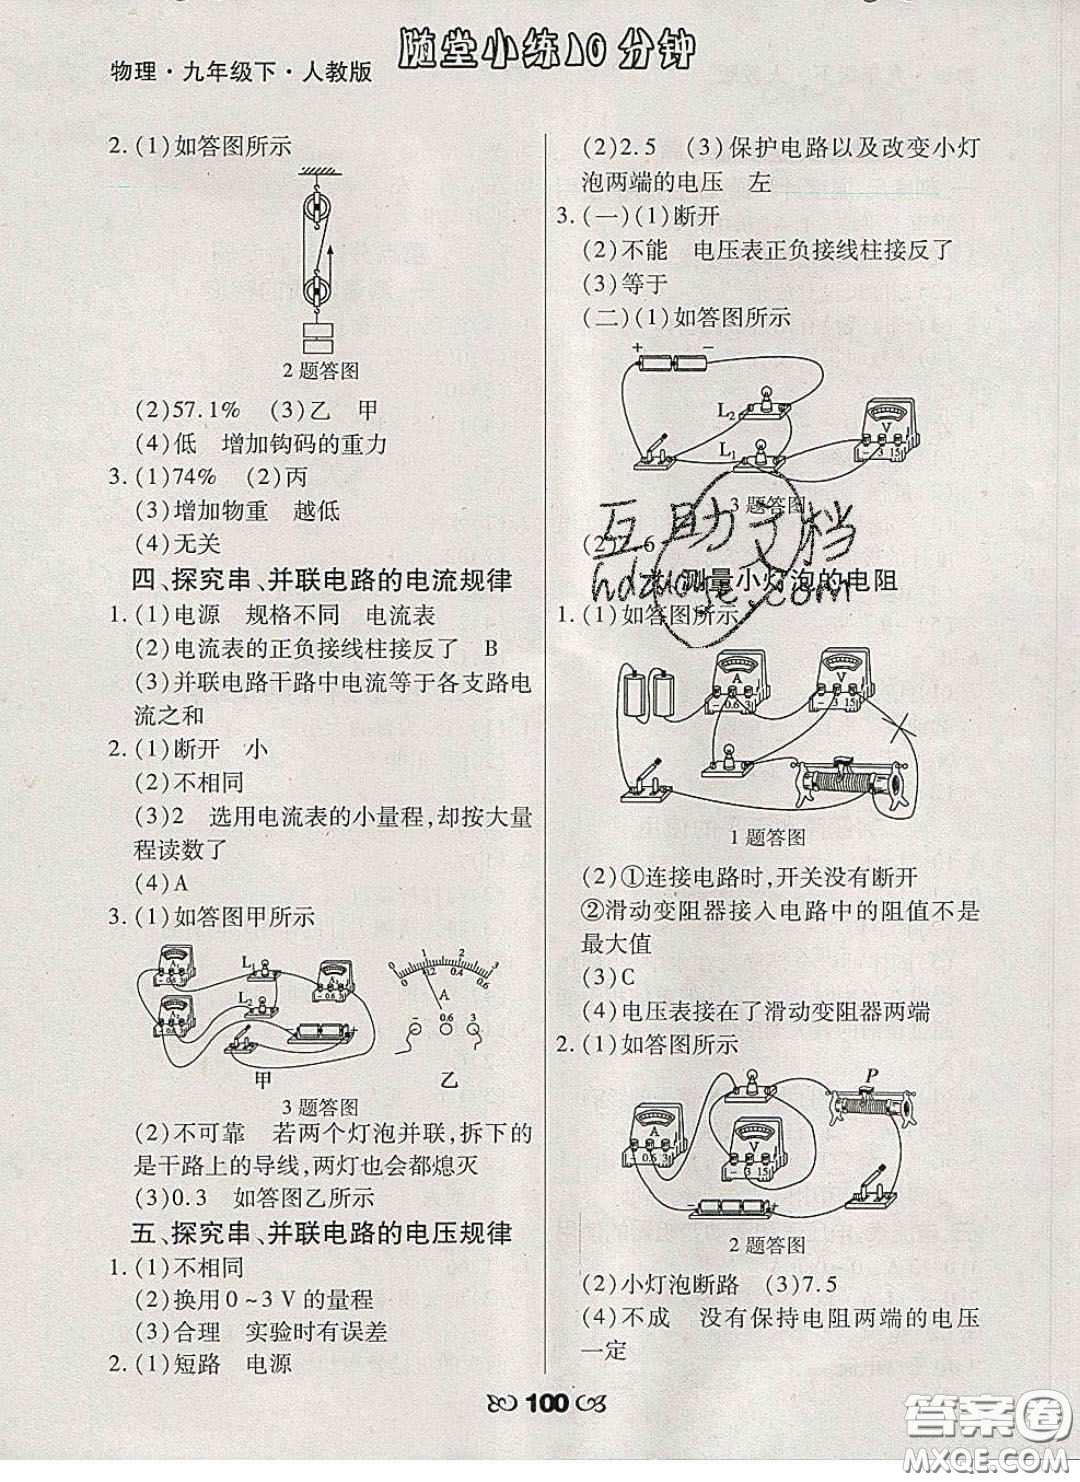 随堂小练10分钟
物理·九年级下·人教版
2.(1)如答图所示
2题答图
(2)57.1% (3)乙 甲
(4)低 增加钩码的重力
3.(1)74% (2)丙
(3)增加物重 越低
(4)无关
四、探究串、并联电路的电流规律
1.(1)电源 规格不同 电流表
(2)电流表的正负接线柱接反了 B
(3)并联电路干路中电流等于各支路电
流之和
2.(1)断开 小
(2)不相同
(3)2 选用电流表的小量程,却按大量
程读数了
(4)A
3.(1)如答图甲所示
L₁
L₂
甲
0 1 2 3
0 0.2 0.4 0.6
A
- 0.6 3
乙
3题答图
(2)不可靠 若两个灯泡并联,拆下的
是干路上的导线,两灯也会都熄灭
(3)0.3 如答图乙所示
五、探究串、并联电路的电压规律
1.(1)不相同
(2)换用0~3 V的量程
(3)合理 实验时有误差
2.(1)短路 电源
(2)2.5 (3)保护电路以及改变小灯
泡两端的电压 左
3.(一)(1)断开
(2)不能 电压表正负接线柱接反了
(3)等于
(二)(1)如答图所示
+ -
L₂
L₁
V
- 3 15
3题答图
互助文档
hdzuoye.com
测量小灯泡的电阻
1.(1)如答图所示
A
- 0.6 3
V
- 3 15
1题答图
(2)①连接电路时,开关没有断开
②滑动变阻器接入电路中的阻值不是
最大值
(3)C
(4)电压表接在了滑动变阻器两端
2.(1)如答图所示
P
A
- 0.6 3
V
- 3 15
- +
2题答图
(2)小灯泡断路 (3)7.5
(4)不成 没有保持电阻两端的电压
一定
100
答案圈
MXQE.COM